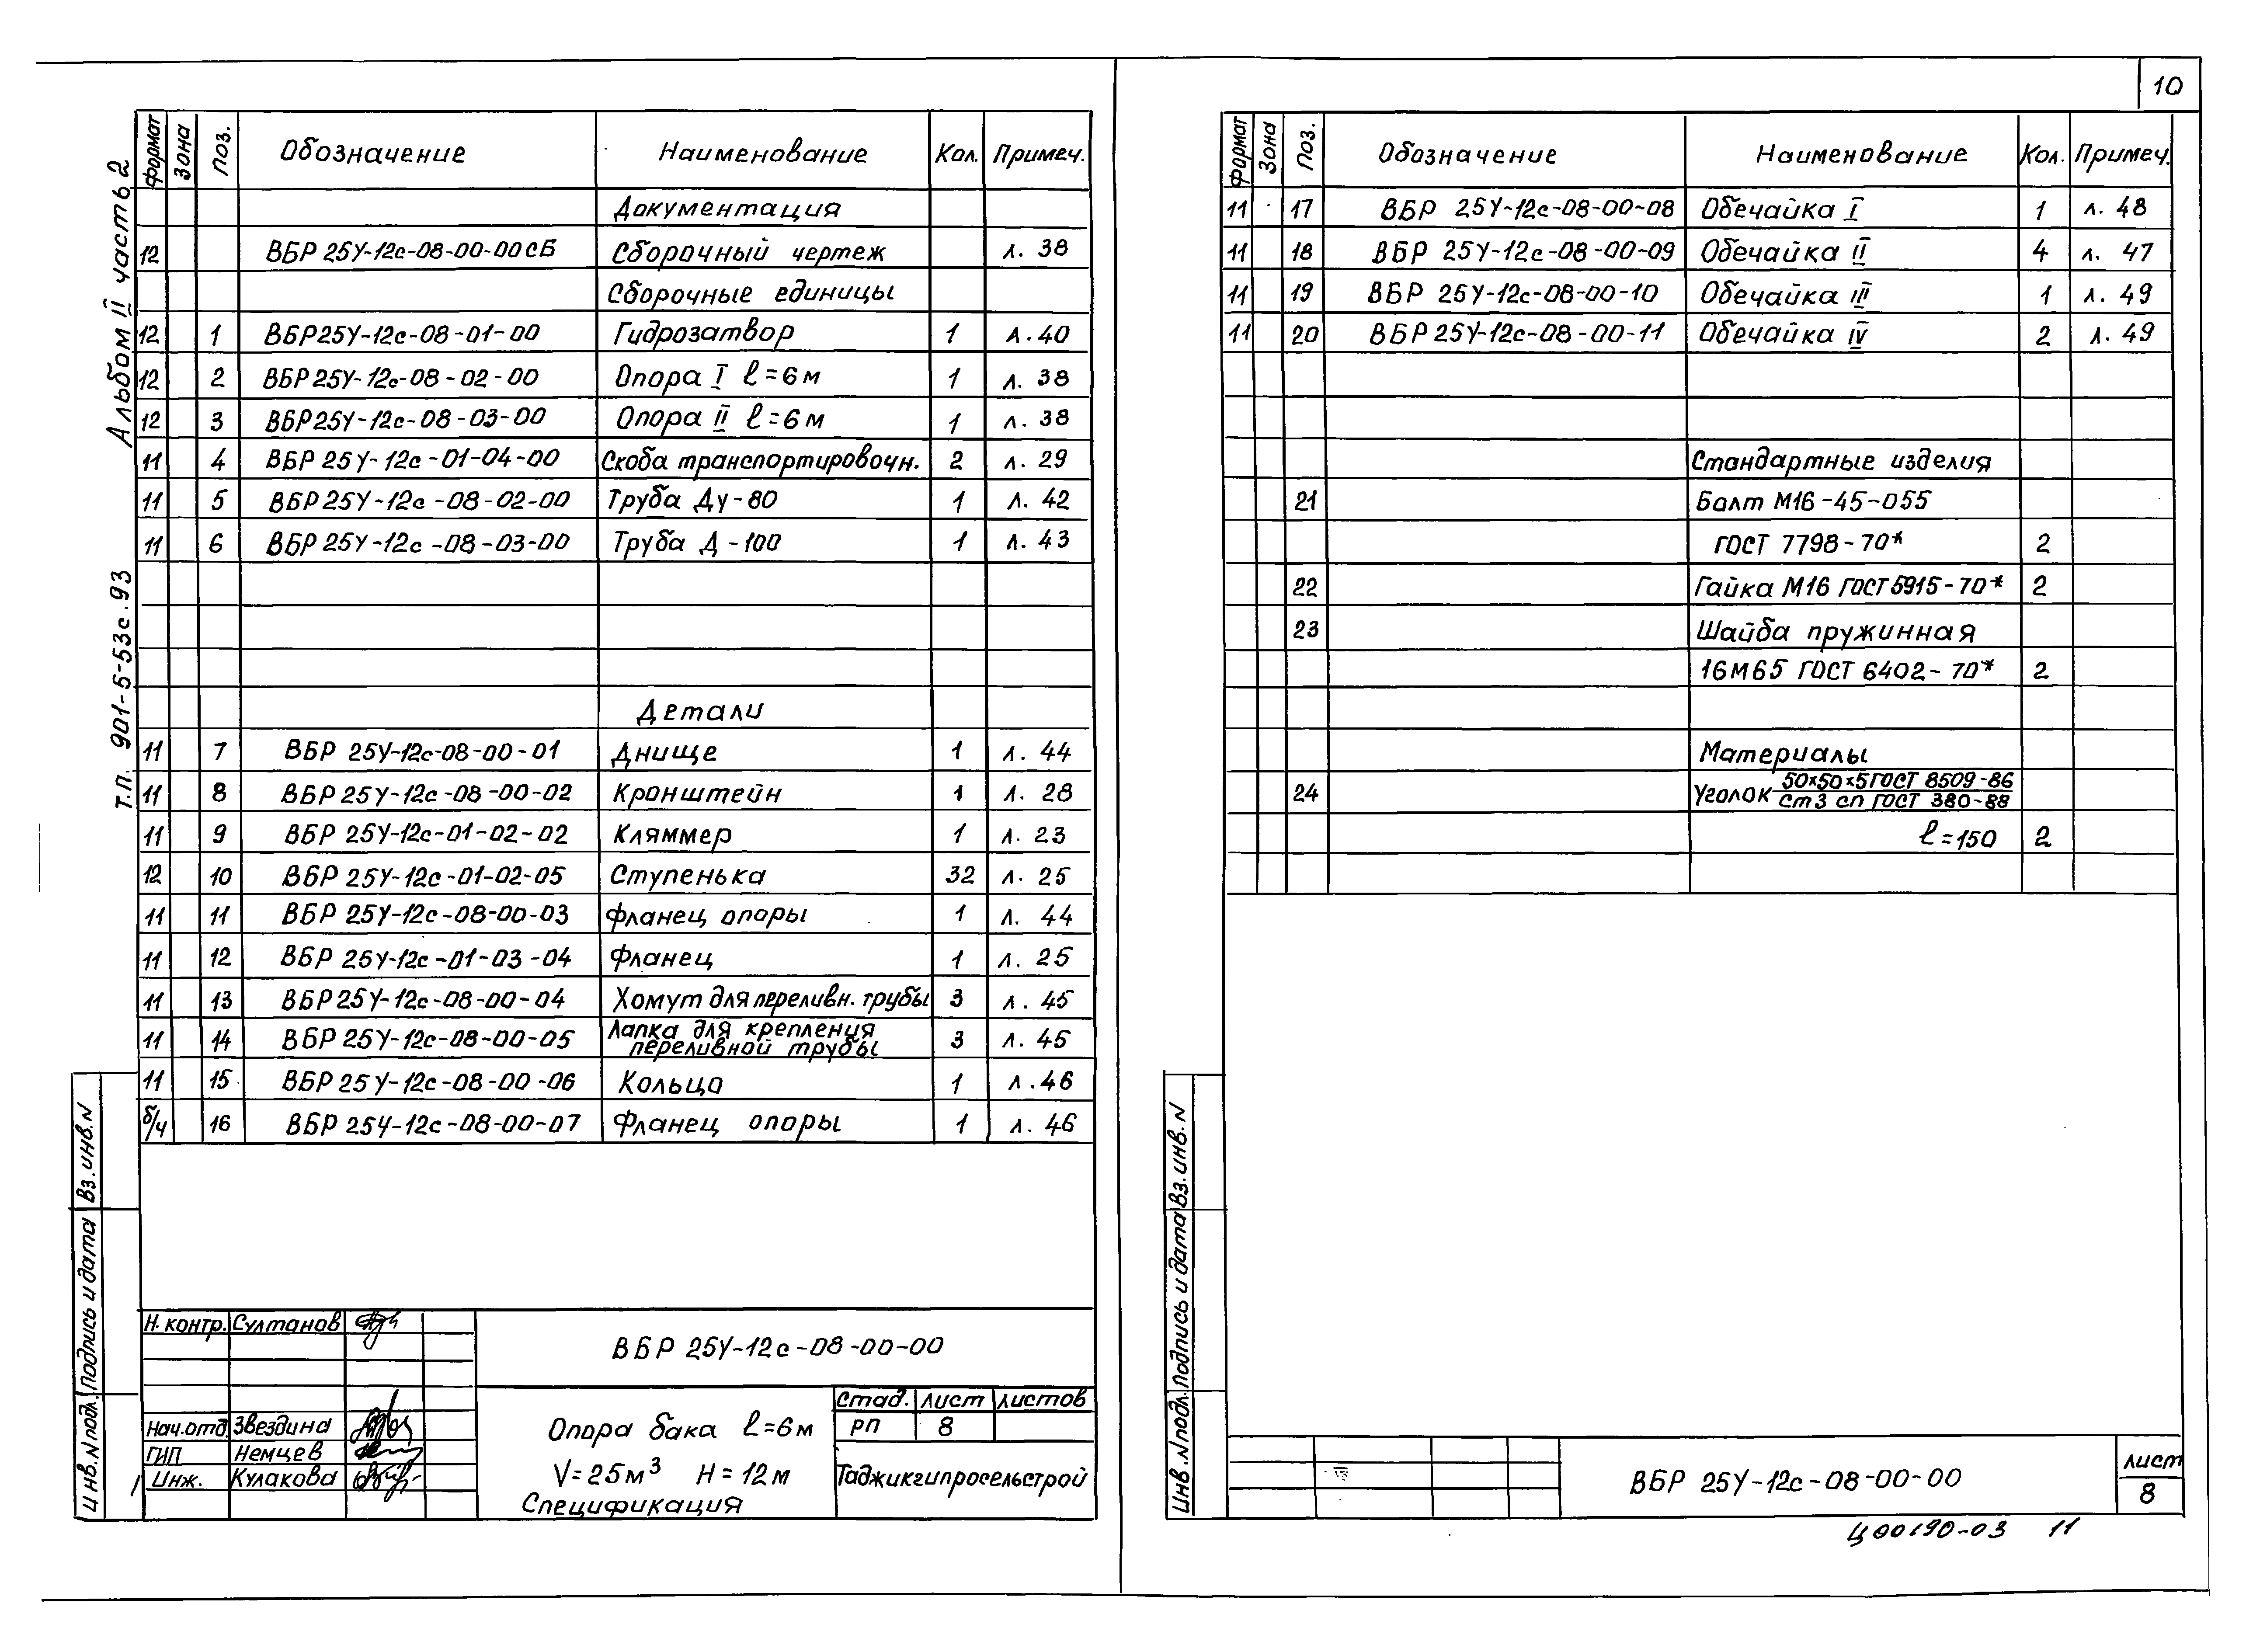 10
Альбом II часть 2
т.п. 901-5-53с.93
Формат Зона Поз. Обозначение Наименование Кол. Примеч.
Документация
12 ВБР 25У-12с-08-00-00СБ Сборочный чертеж л. 38
Сборочные единицы
12 1 ВБР25У-12с-08-01-00 Гидрозатвор 1 л. 40
12 2 ВБР25У-12с-08-02-00 Опора I ℓ=6м 1 л. 38
12 3 ВБР25У-12с-08-03-00 Опора II ℓ=6м 1 л. 38
11 4 ВБР 25У-12с-01-04-00 Скоба транспортировочн. 2 л. 29
11 5 ВБР 25У-12с-08-02-00 Труба Ду-80 1 л. 42
11 6 ВБР 25У-12с-08-03-00 Труба Д-100 1 л. 43
Детали
11 7 ВБР 25У-12с-08-00-01 Днище 1 л. 44
11 8 ВБР 25У-12с-08-00-02 Кронштейн 1 л. 28
11 9 ВБР 25У-12с-01-02-02 Кляммер 1 л. 23
12 10 ВБР 25У-12с-01-02-05 Ступенька 32 л. 25
11 11 ВБР 25У-12с-08-00-03 Фланец опоры 1 л. 44
11 12 ВБР 25У-12с-01-03-04 Фланец 1 л. 25
11 13 ВБР 25У-12с-08-00-04 Хомут для переливн. трубы 3 л. 45
11 14 ВБР 25У-12с-08-00-05 Лапка для крепления
переливной трубы 3 л. 45
11 15 ВБР 25У-12с-08-00-06 Кольцо 1 л. 46
б/ч 16 ВБР 25У-12с-08-00-07 Фланец опоры 1 л. 46
Вз. инв. N
Подпись и дата
Инв. N подл.
Н. контр. Султанов
Нач. отд. Звездина
ГИП Немцев
Инж. Кулакова
ВБР 25У-12с-08-00-00
Опора бака ℓ=6м
V=25м³ H=12м
Спецификация
Стад. Лист Листов
РП 8
Таджикгипросельстрой
Формат Зона Поз. Обозначение Наименование Кол. Примеч.
11 17 ВБР 25У-12с-08-00-08 Обечайка I 1 л. 48
11 18 ВБР 25У-12с-08-00-09 Обечайка II 4 л. 47
11 19 ВБР 25У-12с-08-00-10 Обечайка III 1 л. 49
11 20 ВБР 25У-12с-08-00-11 Обечайка IV 2 л. 49
Стандартные изделия
21 Болт М16-45-055
ГОСТ 7798-70* 2
22 Гайка М16 ГОСТ 5915-70* 2
23 Шайба пружинная
16М65 ГОСТ 6402-70* 2
Материалы
24 Уголок 50х50х5 ГОСТ 8509-86
Ст3 сп ГОСТ 380-88
ℓ=150 2
Вз. инв. N
Подпись и дата
Инв. N подл.
ВБР 25У-12с-08-00-00
Лист
8
Ц00190-03 11